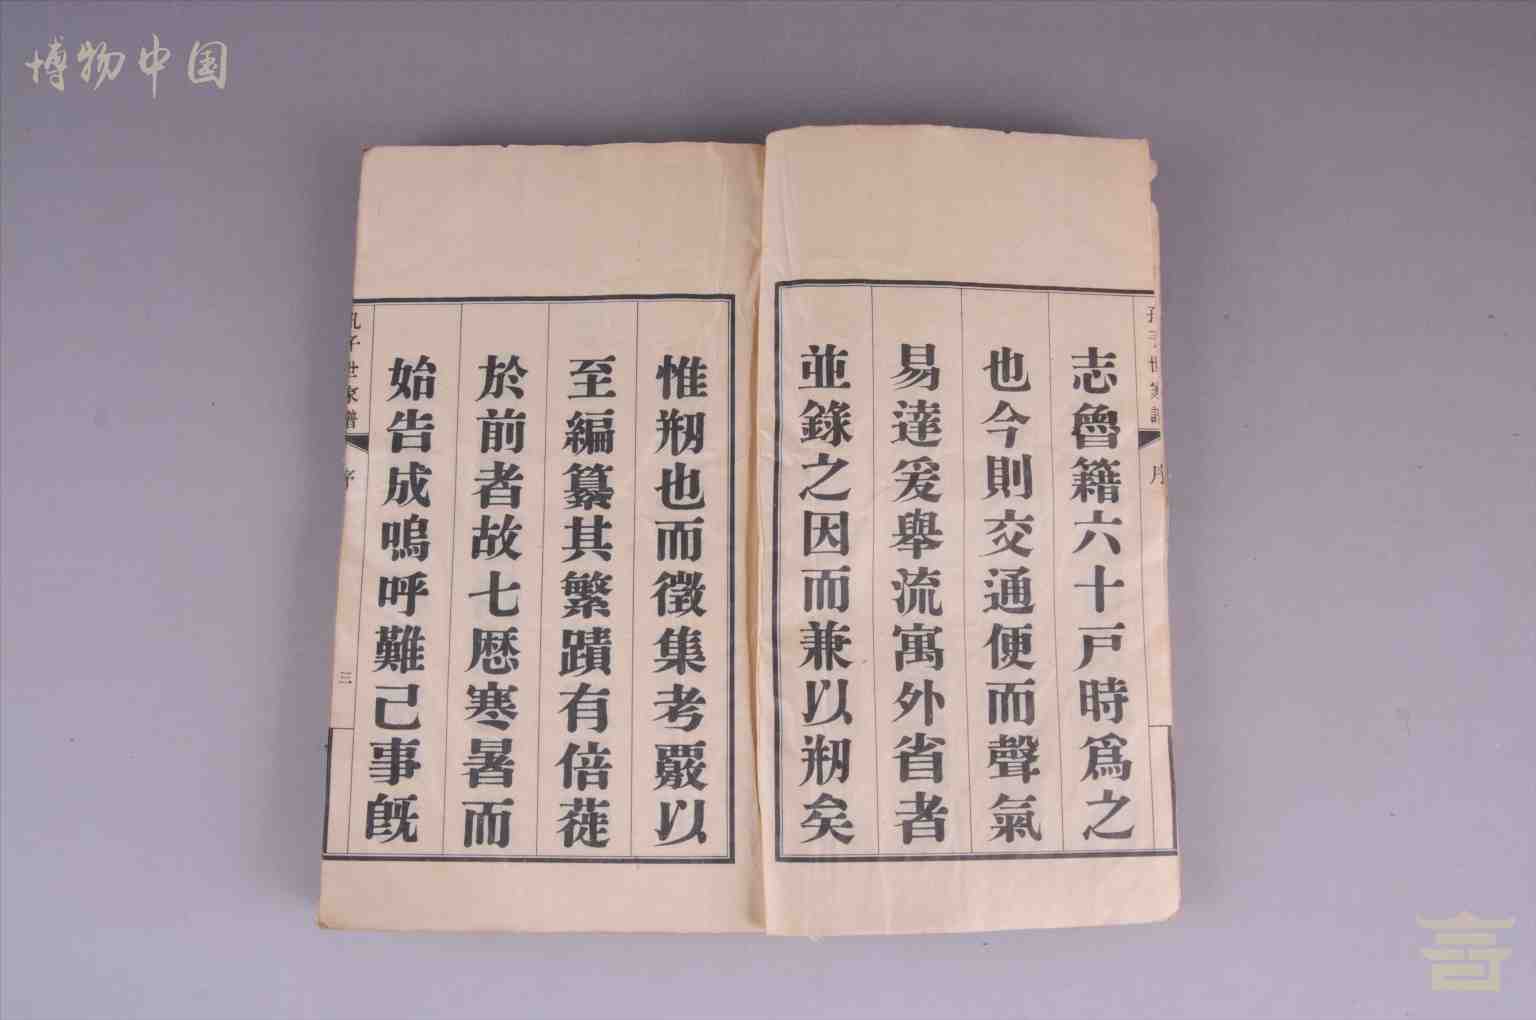 博物中国
孔子世家譜
序
志魯籍六十戸時爲之
也今則交通便而聲氣
易達爰舉流寓外省者
並錄之因而兼以剏矣
惟剏也而徵集考覈以
至編纂其繁蹟有倍蓰
於前者故七厯寒暑而
始告成嗚呼難己事旣
孔子世家譜
序
三